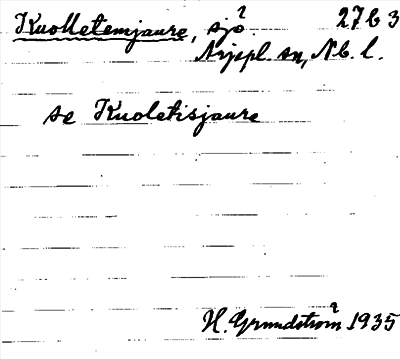 Kuolletemjaure, sjö. 27 b 3
Arjepl. sn, Nb. l.
se Kuoletisjaure
H. Grundström 1935